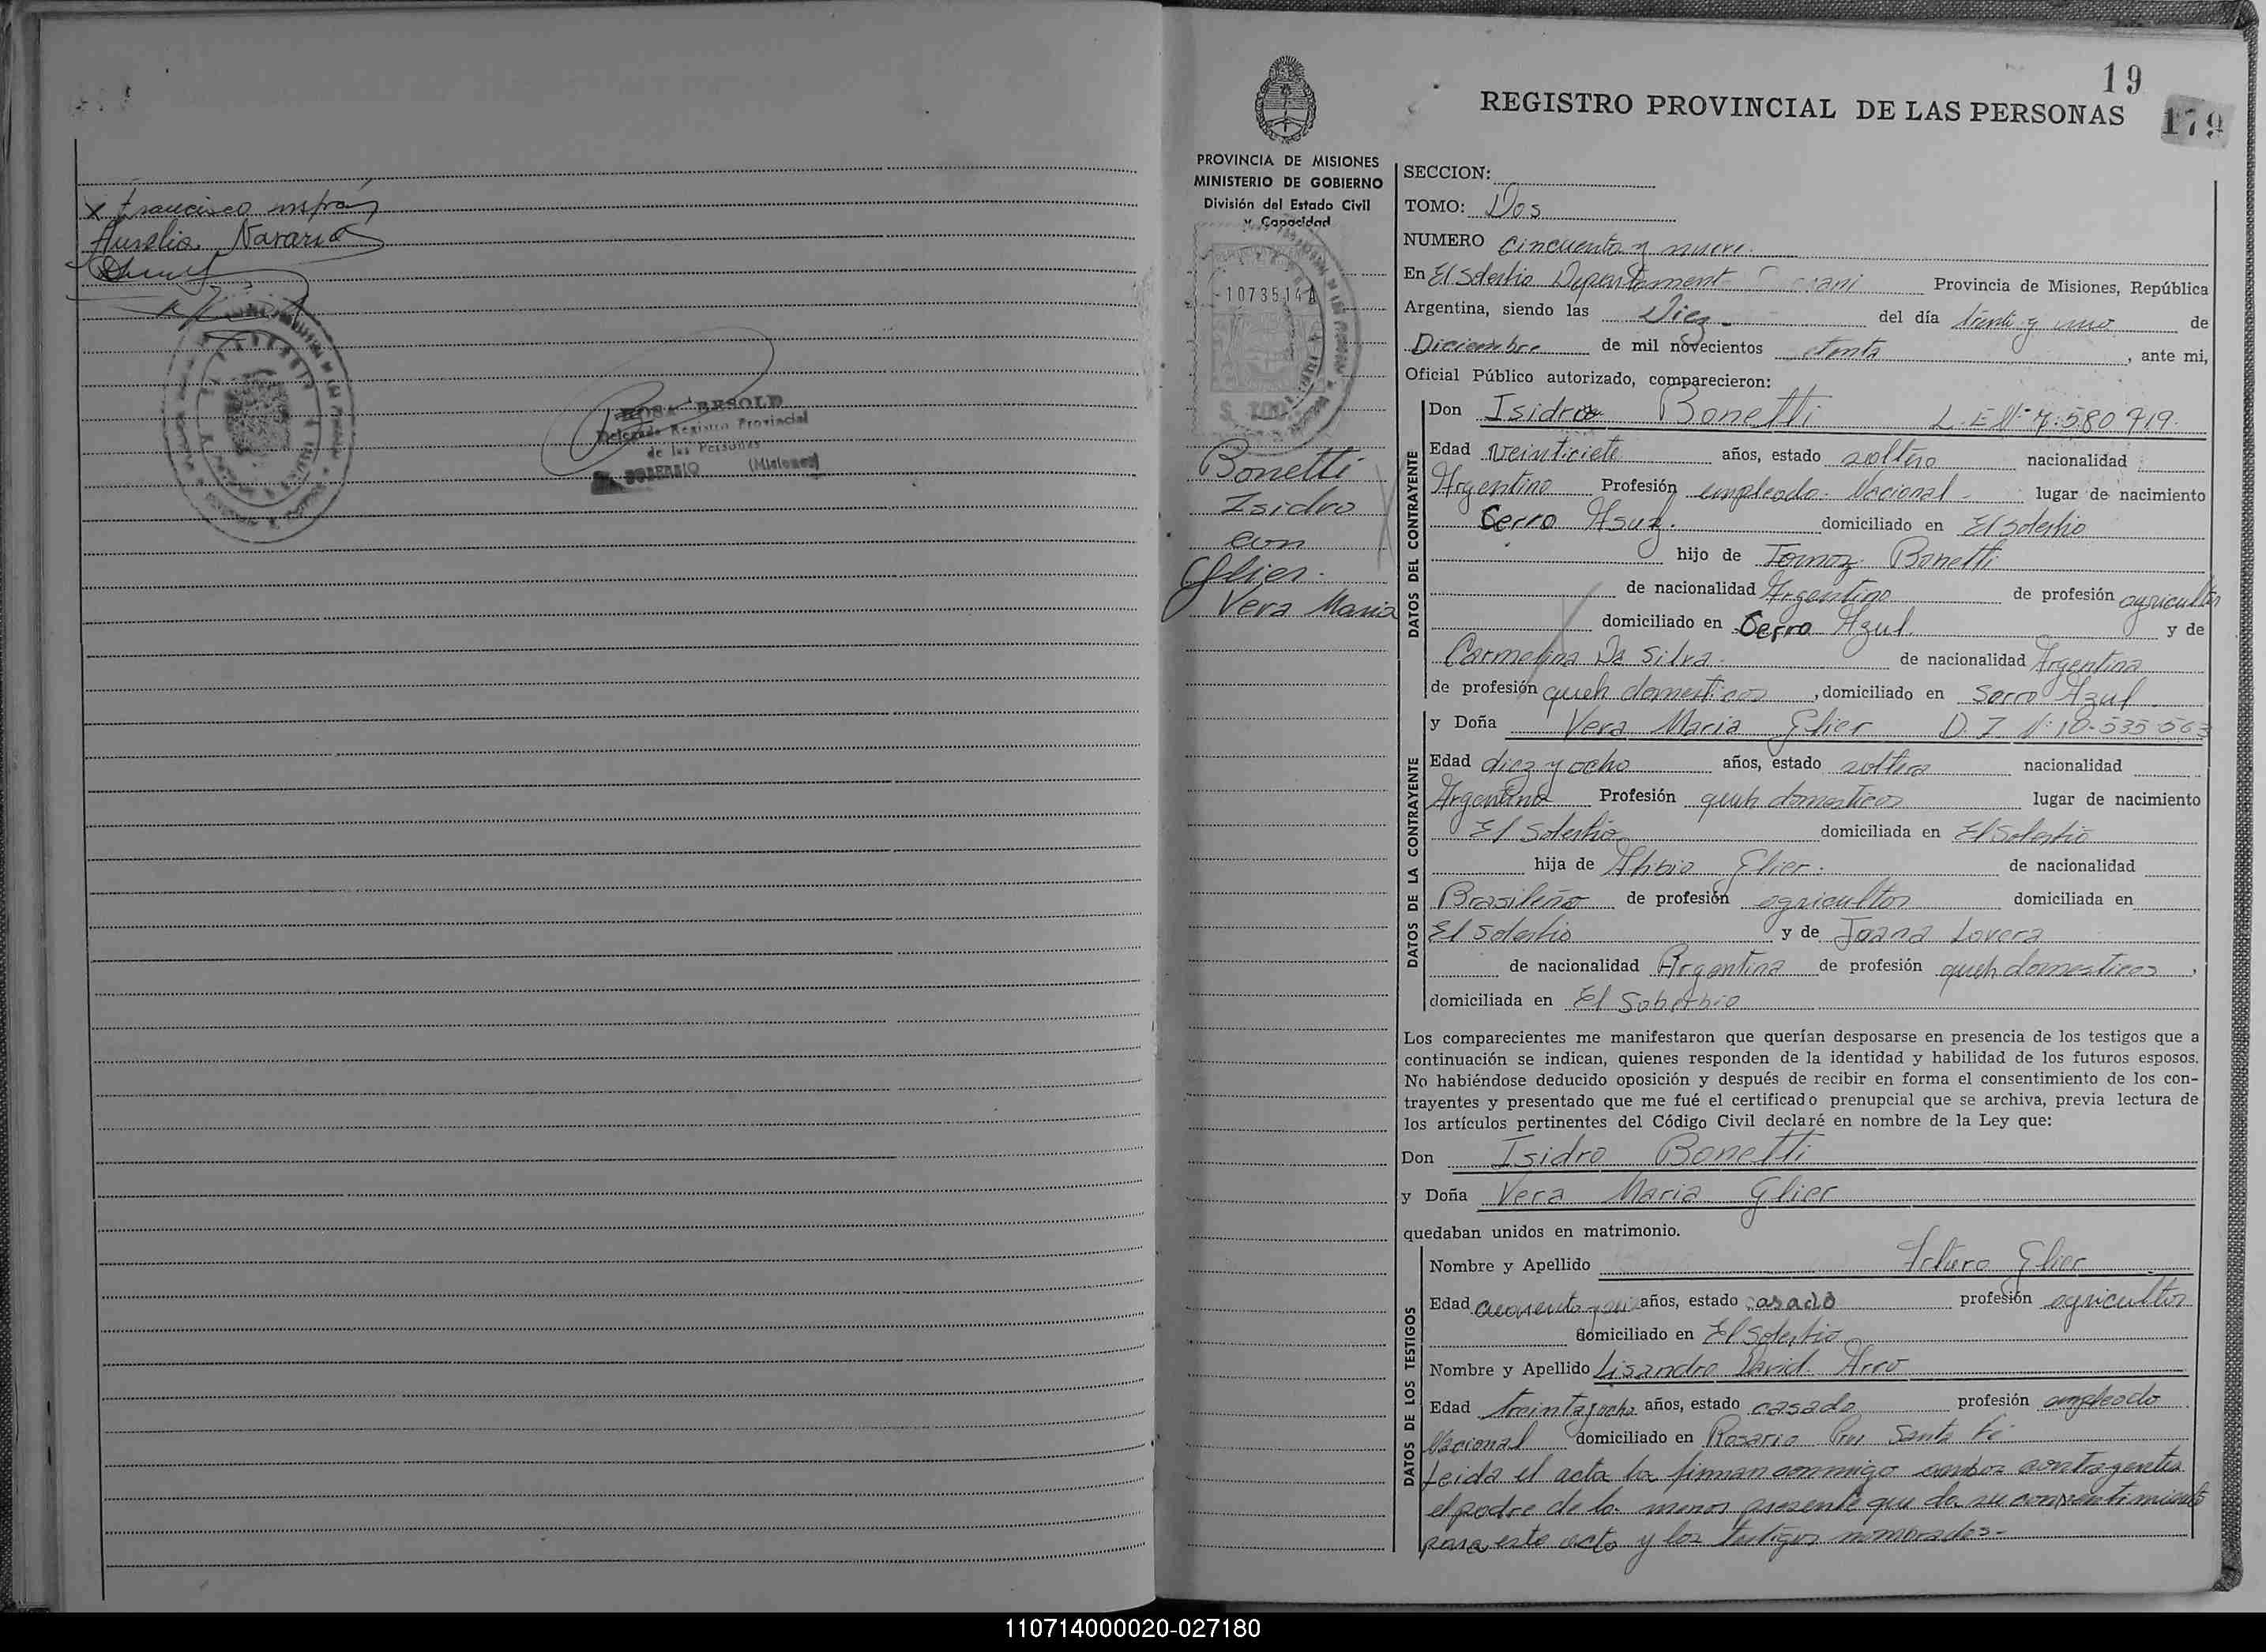 x Francisco
Aurelia Navarro
ROSA BESOLD
Delegada Registro Provincial
de las Personas
EL SOBERBIO (Misiones)
19
REGISTRO PROVINCIAL DE LAS PERSONAS
179
PROVINCIA DE MISIONES
MINISTERIO DE GOBIERNO
División del Estado Civil
y Capacidad
-1073514
Bonetti
Isidro
con
Glier
Vera Maria
SECCION:
TOMO: Dos
NUMERO Cincuenta y nueve.
En El Soberbio Departamento Provincia de Misiones, República
Argentina, siendo las Diez del día treinta y uno de
Diciembre de mil novecientos , ante mi,
Oficial Público autorizado, comparecieron:
DATOS DEL CONTRAYENTE
Don Isidro Bonetti L.E Nº 7.580.719.
Edad veinticiete años, estado soltero nacionalidad
Argentino Profesión empleado Nacional lugar de nacimiento
Cerro Asul. domiciliado en El Soberbio
hijo de Tomaz Bonetti
de nacionalidad Argentino de profesión agricultor
domiciliado en Cerro Azul. y de
Carmelina Da Silva de nacionalidad Argentina
de profesión queh domesticos , domiciliado en Serro Azul
DATOS DE LA CONTRAYENTE
y Doña Vera Maria Glier D.I. Nº 10.535.563
Edad diez y ocho años, estado soltera nacionalidad
Argentina Profesión queh domesticos lugar de nacimiento
El Soberbio domiciliada en El Soberbio
hija de Glier. de nacionalidad
Brasileño de profesión agricultor domiciliada en
El Soberbio y de Joana Lovera
de nacionalidad Argentina de profesión queh domesticos ,
domiciliada en El Soberbio
Los comparecientes me manifestaron que querían desposarse en presencia de los testigos que a
continuación se indican, quienes responden de la identidad y habilidad de los futuros esposos.
No habiéndose deducido oposición y después de recibir en forma el consentimiento de los con-
trayentes y presentado que me fué el certificado prenupcial que se archiva, previa lectura de
los artículos pertinentes del Código Civil declaré en nombre de la Ley que:
Don Isidro Bonetti
y Doña Vera Maria Glier
quedaban unidos en matrimonio.
DATOS DE LOS TESTIGOS
Nombre y Apellido Arturo Glier
Edad cuarenta y años, estado casado profesión agricultor
domiciliado en El Soberbio
Nombre y Apellido Lisandro David Arco
Edad treinta y ocho años, estado casado profesión empleado
Nacional domiciliado en Rosario Prov Santa Fé
Leida el acta la firman conmigo ambos contragentes
el padre de la menor presente que da su consentimiento
para este acto y los testigos nombrados-
110714000020-027180